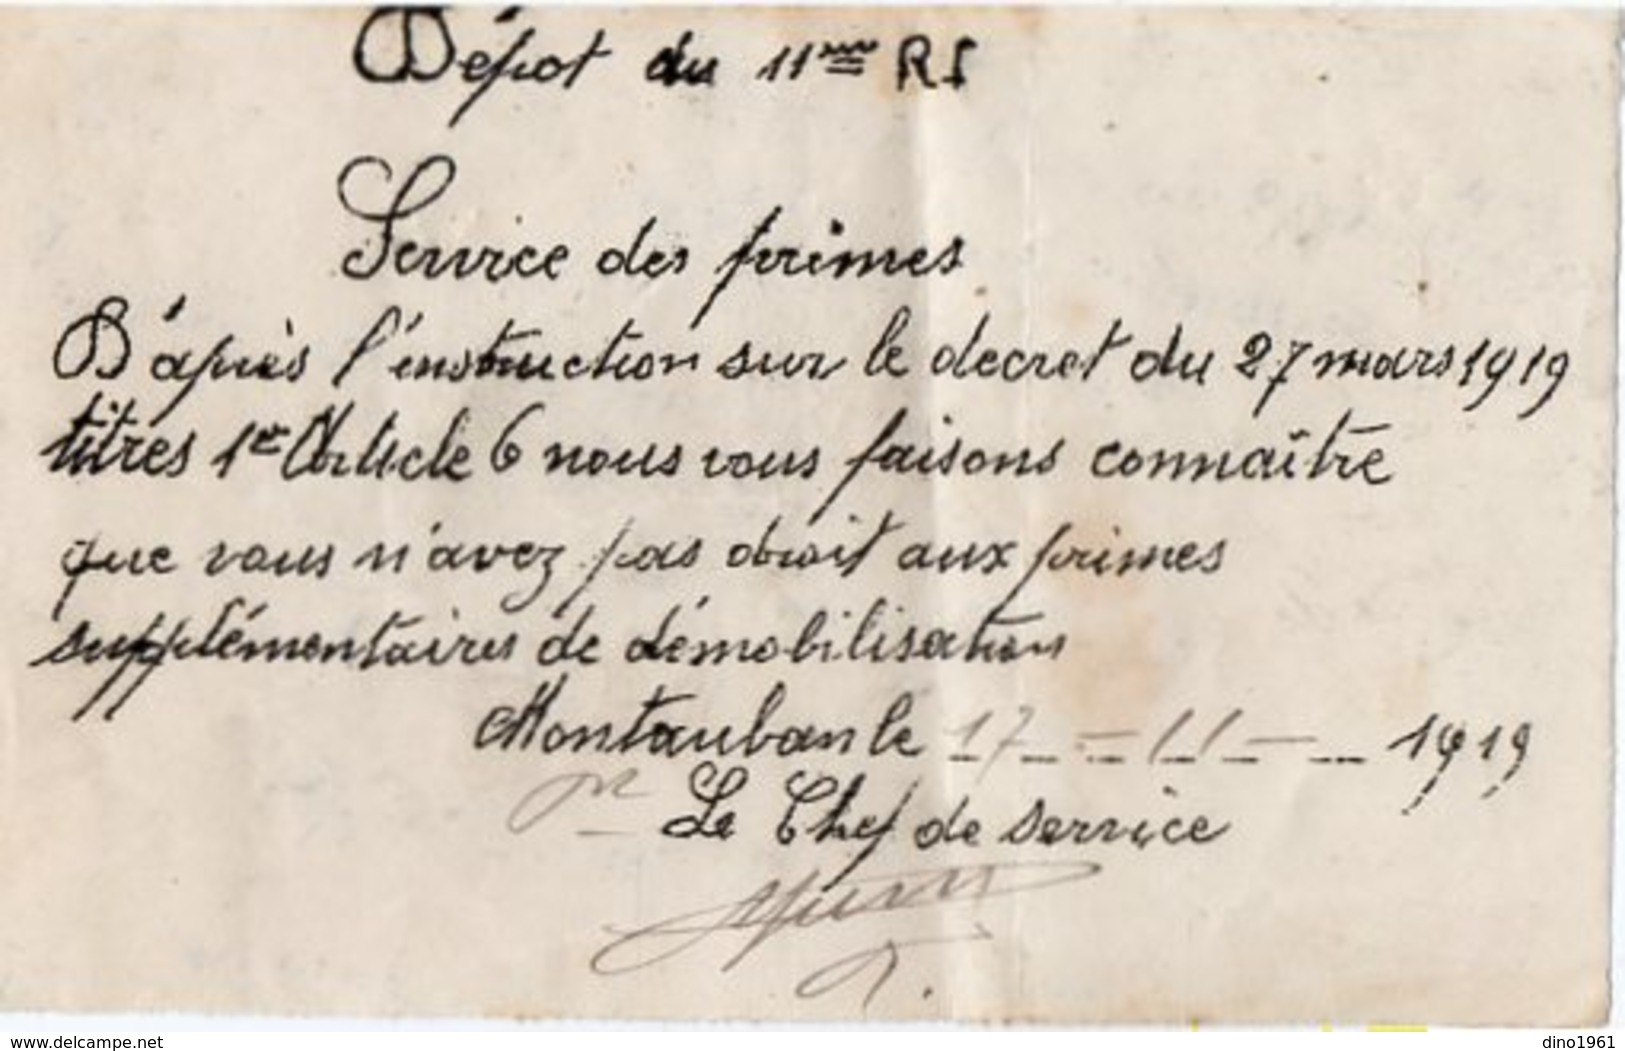 Dépot du 11ème RI
Service des primes
D'après l'instruction sur le decret du 27 mars 1919
titres 1er Article 6 nous vous faisons connaître
que vous n'avez pas droit aux primes
supplémentaires de démobilisation
Montauban le 17 - 11 - 1919
Le Chef de service
delcampe.net
dino1961